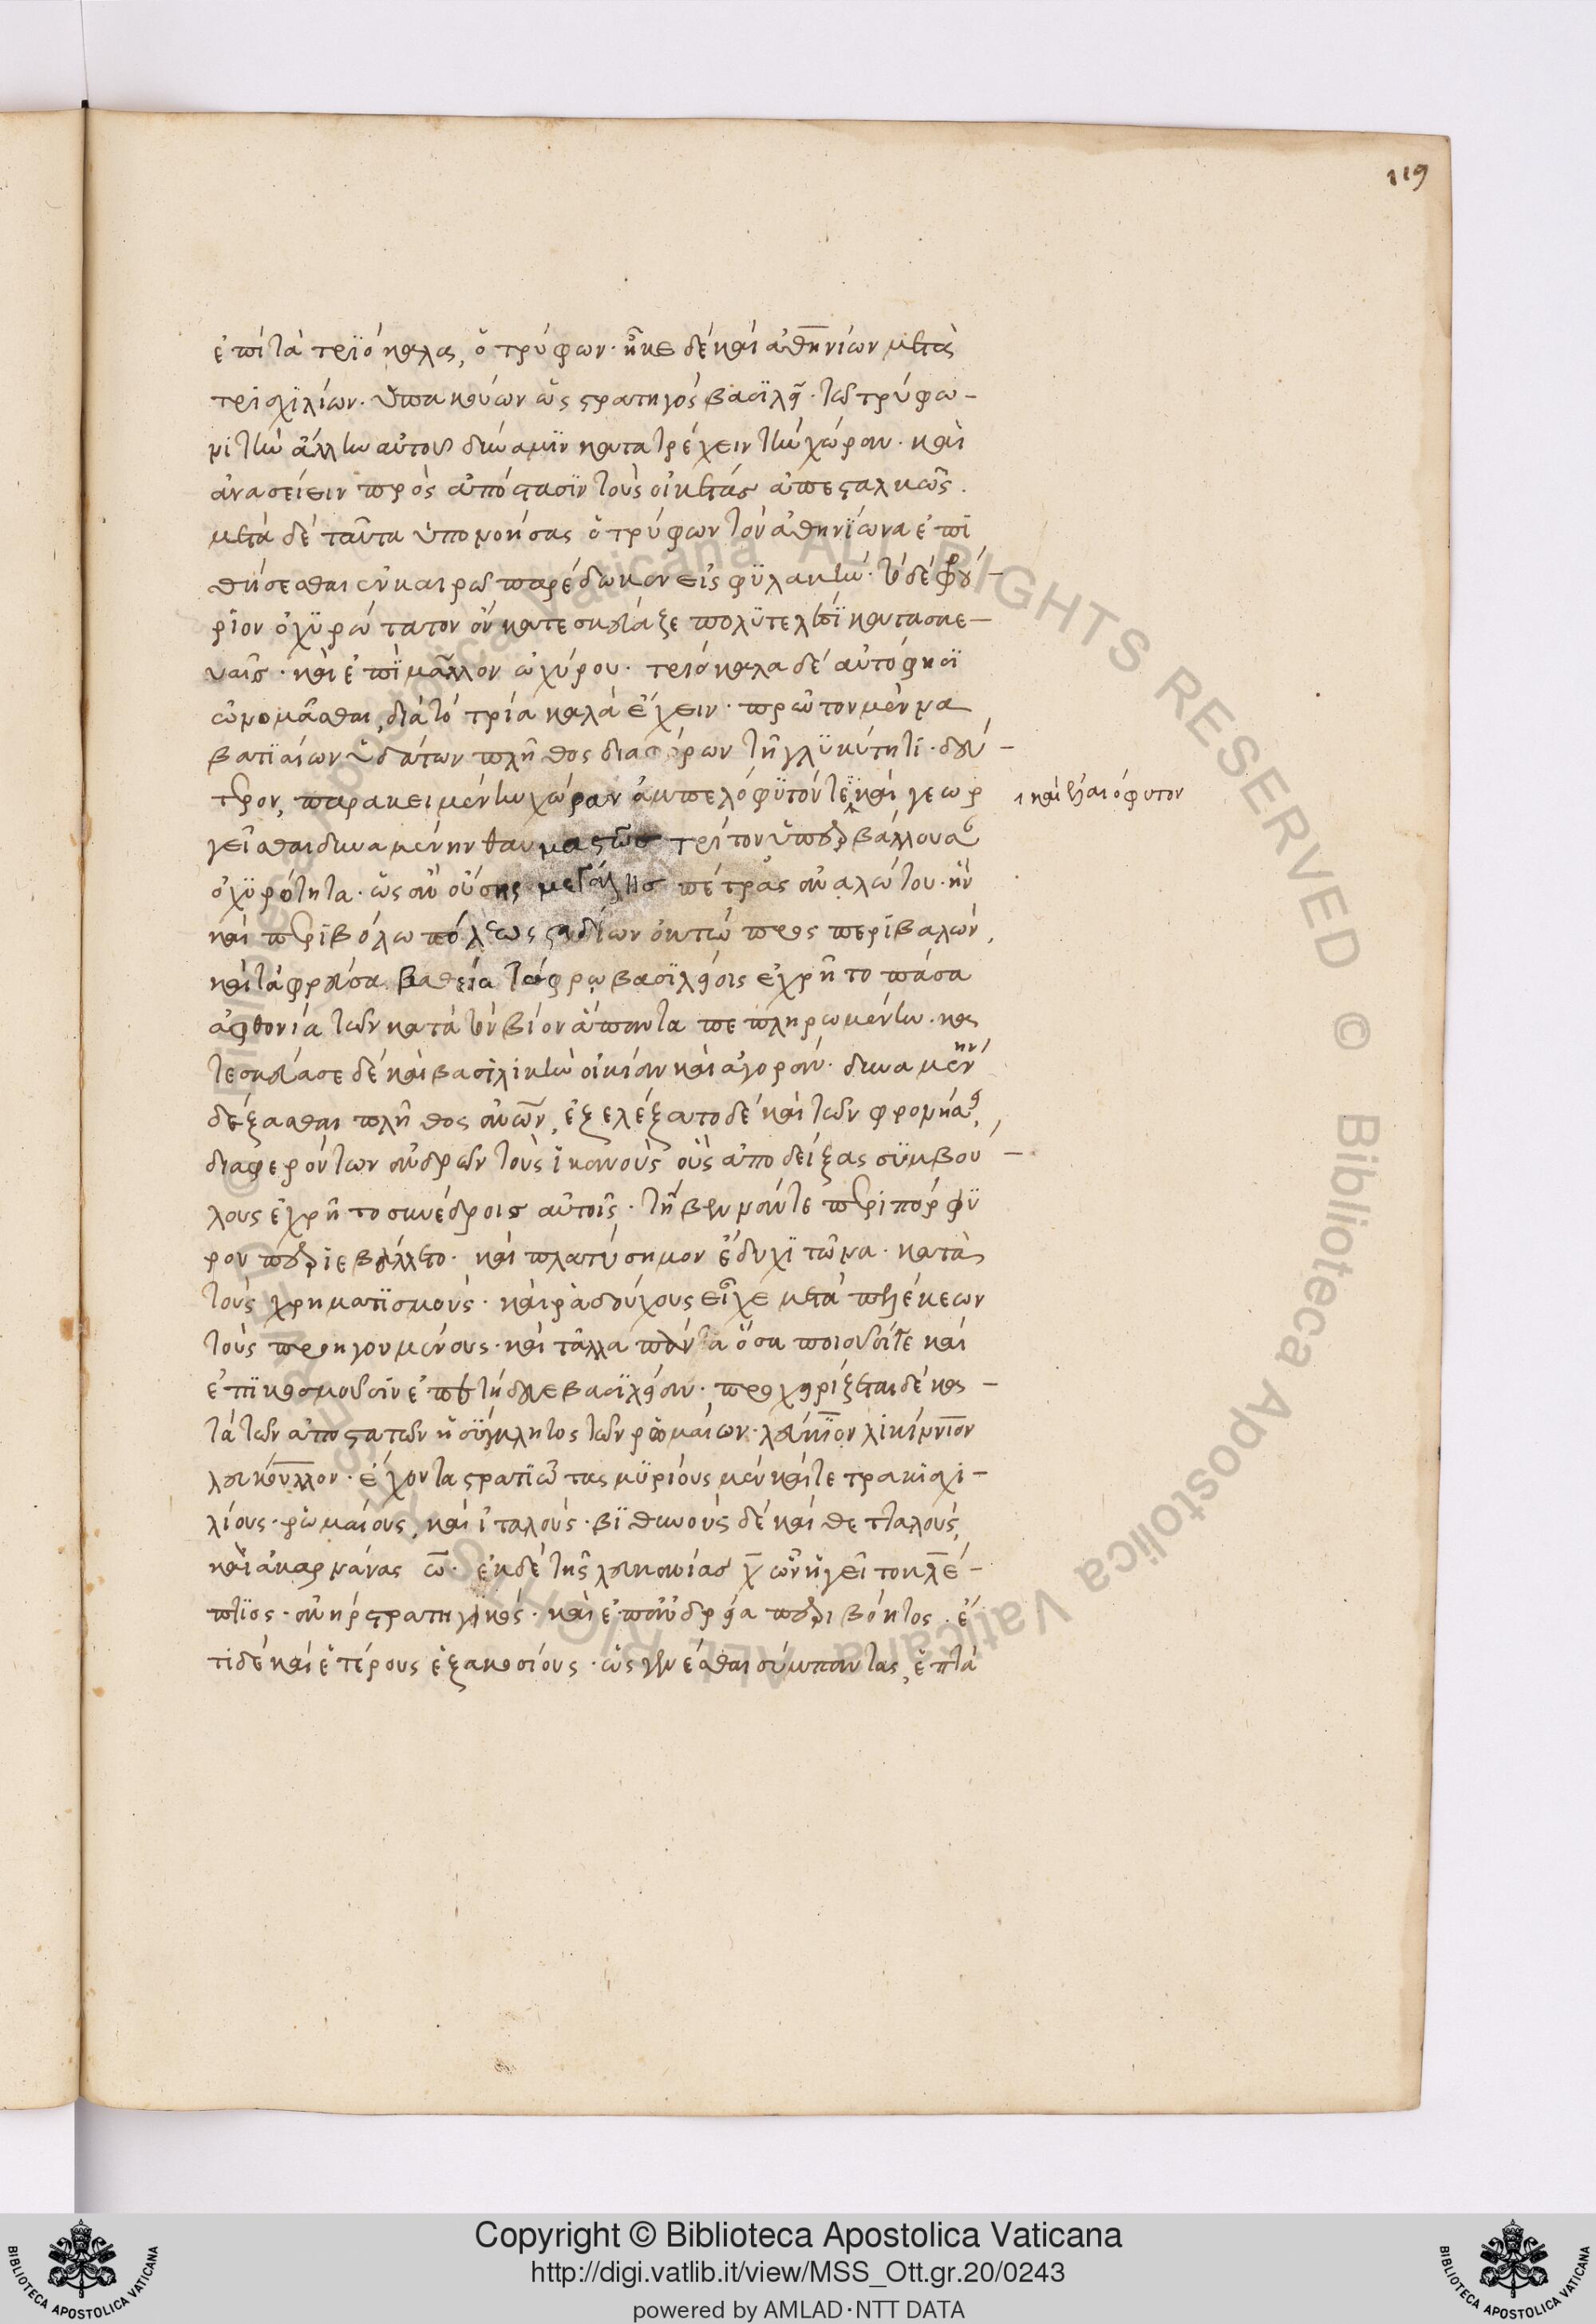 119
ἐπὶ τὰ τριόκαλα, ὁ τρύφων· ἧκε δὲ καὶ ἀθηνίων μετὰ
τρισχιλίων· ὑπακούων ὡς στρατηγὸς βασιλεῖ· τῷ τρύφω-
νι τὴν ἄλλην αὐτοῦ δύναμιν κατατρέχειν τὴν χώραν· καὶ
ἀνασείειν πρὸς ἀπόστασιν τοὺς οἰκέτας ἀπεσταλκὼς.
μετὰ δὲ ταῦτα ὑπονοήσας ὁ τρύφων τὸν ἀθηνίωνα ἐπι
θήσεσθαι ἐν καιρῷ παρέδωκεν εἰς φυλακήν· τὸ δὲ φρού-
ριον ὀχυρώτατον ὂν κατεσκεύαζε πολυτελέσι κατασκε-
υαῖς· καὶ ἐπὶ μᾶλλον ὠχύρου· τριόκαλα δὲ αὐτὸ φησὶ
ὠνομάσθαι, διὰ τὸ τρία καλὰ ἔχειν· πρῶτον μὲν να
βατιαίων ὑδάτων πλῆθος διαφόρων τῇ γλυκύτητι· δεύ-
τερον, παρακειμένην χώραν ἀμπελόφυτόν τε καὶ γεωρ
καὶ ἐλαιόφυτον
γεῖσθαι δυναμένην θαυμαστῶς τρίτον ὑπερβάλλουσα
ὀχυρότητα· ὡς ἂν οὔσης μεγάλης πέτρας ἀναλώτου· ἣν
καὶ περιβόλῳ πόλεως σταδίων ὀκτὼ προς περιβαλὼν,
καὶ ταφρεύσα βαθείᾳ τάφρῳ βασιλείοις ἐχρῆτο πάσα
ἀφθονία τῶν κατὰ τὸν βίον ἅπαντα πεπληρωμένην· κα
τεσκεύασε δὲ καὶ βασιλικὴν οἰκίαν καὶ ἀγορὰν· δυναμένην
δέξασθαι πλῆθος ἀνῶν, ἐξελέξατο δὲ καὶ τῶν φρονήσει,
διαφερόντων ἀνδρῶν τοὺς ἱκανοὺς οὓς ἀποδείξας συμβου-
λους ἐχρῆτο συνέδροις αὐτοῖς· τήβεννάν τε περιπόρφυ
ρον περιεβάλλετο· καὶ πλατύσημον ἔδυ χιτῶνα· κατὰ
τοὺς χρηματισμούς· καὶ ῥαβδούχους εἶχε μετὰ πελέκεων
τοὺς προηγουμένους· καὶ τἄλλα πάντα ὅσα ποιοῦσί τε καὶ
ἐπικοσμοῦσιν ἐπετήδευε βασιλείαν· προχειρίζεται δὲ κα-
τὰ τῶν ἀποστατῶν ἡ σύγκλητος τῶν ῥωμαίων· λεύκιον λικίννιον
λεύκουλλον· ἔχοντα στρατιώτας μυρίους μὲν καὶ τετρακισχι-
λίους· ῥωμαίους, καὶ ἰταλούς· βιθυνοὺς δὲ καὶ θετταλούς,
καὶ ἀκαρνάνας ω̅· ἐκ δὲ τῆς λευκανίας χ̅ ὧν ἡγεῖτο κλέ-
πτιος· ἀνὴρ στρατηγικὸς· καὶ ἐπ' ἀνδρείᾳ περιβόητος· ἔ
τι δὲ καὶ ἑτέρους ἑξακοσίους· ὡς γενέσθαι σύμπαντας, ἑπτὰ
Copyright © Biblioteca Apostolica Vaticana
http://digi.vatlib.it/view/MSS_Ott.gr.20/0243
powered by AMLAD·NTT DATA